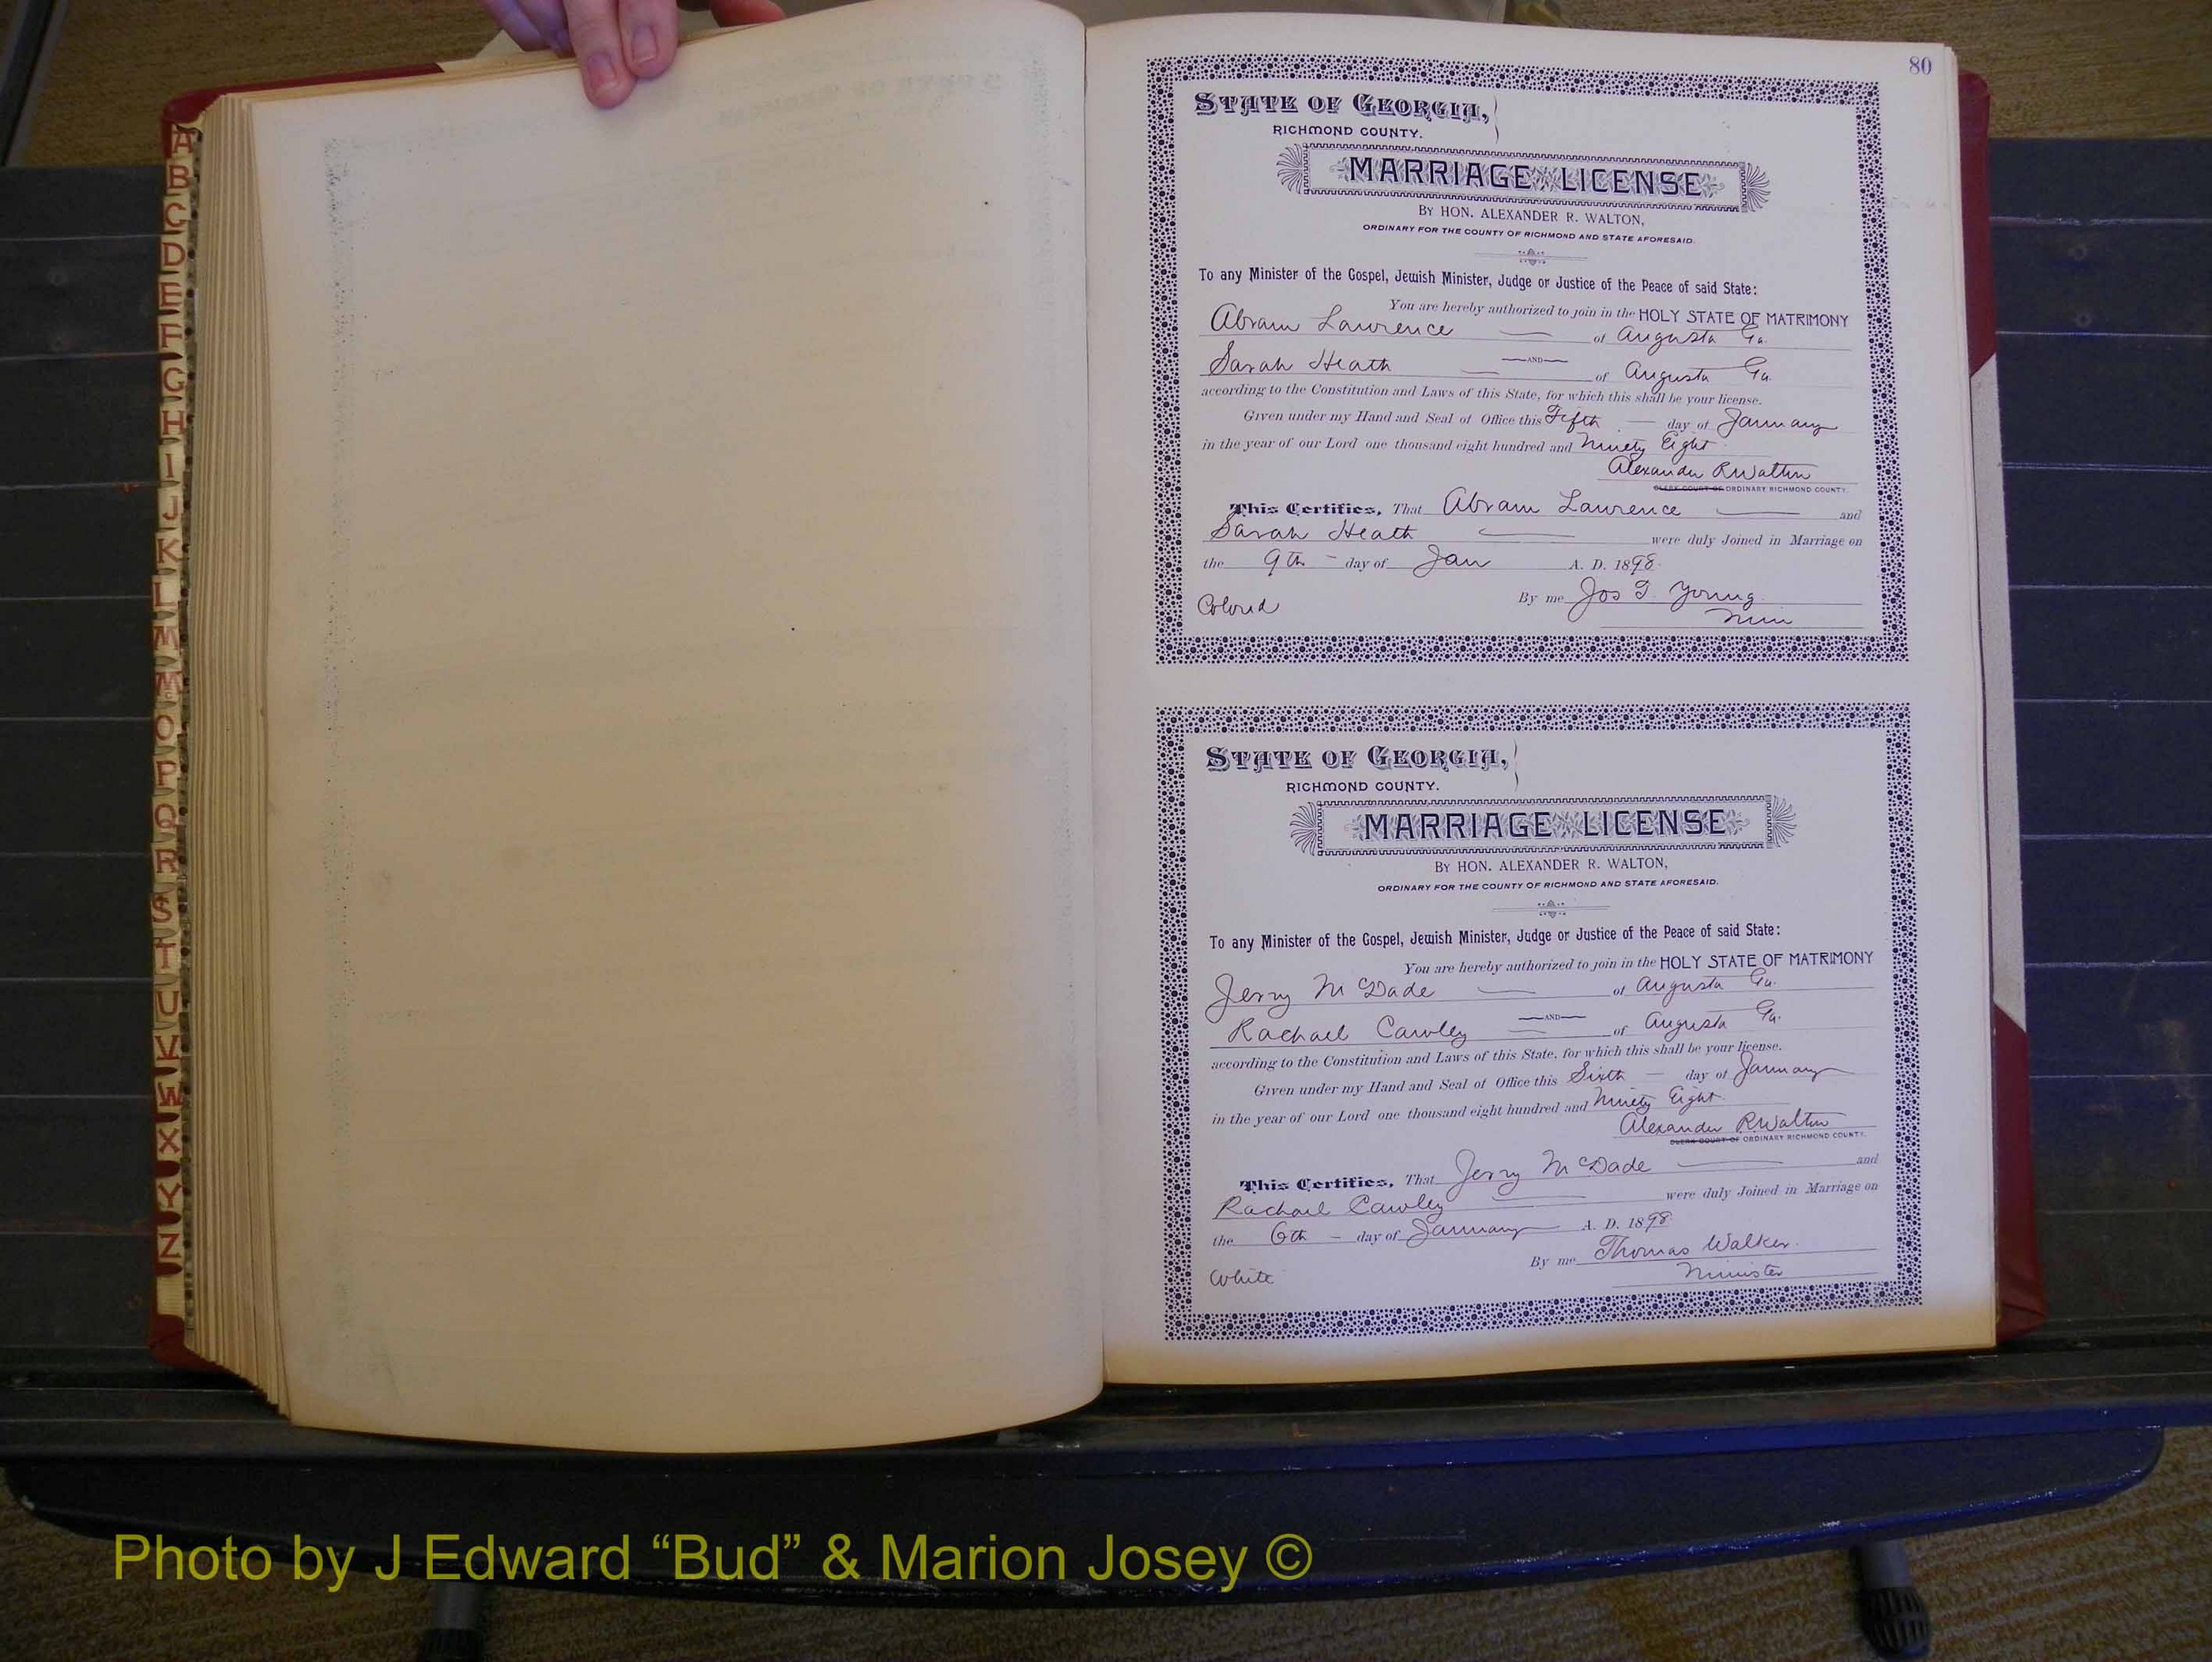 80
STATE OF GEORGIA,
RICHMOND COUNTY.
MARRIAGE LICENSE
BY HON. ALEXANDER R. WALTON,
ORDINARY FOR THE COUNTY OF RICHMOND AND STATE AFORESAID.
To any Minister of the Gospel, Jewish Minister, Judge or Justice of the Peace of said State:
You are hereby authorized to join in the HOLY STATE OF MATRIMONY
Abram Lawrence of Augusta Ga.
AND
Sarah Heath of Augusta Ga.
according to the Constitution and Laws of this State, for which this shall be your license.
Given under my Hand and Seal of Office this Fifth day of January
in the year of our Lord one thousand eight hundred and Ninety Eight
Alexander R Walton
CLERK COURT OF ORDINARY RICHMOND COUNTY.
This Certifies, That Abram Lawrence and
Sarah Heath were duly Joined in Marriage on
the 9th day of Jan A. D. 1898
By me Jos T. Young
Colored Min
STATE OF GEORGIA,
RICHMOND COUNTY.
MARRIAGE LICENSE
BY HON. ALEXANDER R. WALTON,
ORDINARY FOR THE COUNTY OF RICHMOND AND STATE AFORESAID.
To any Minister of the Gospel, Jewish Minister, Judge or Justice of the Peace of said State:
You are hereby authorized to join in the HOLY STATE OF MATRIMONY
Jerry McDade of Augusta Ga.
AND
Rachael Cawley of Augusta Ga.
according to the Constitution and Laws of this State, for which this shall be your license.
Given under my Hand and Seal of Office this Sixth day of January
in the year of our Lord one thousand eight hundred and Ninety Eight
Alexander R Walton
CLERK COURT OF ORDINARY RICHMOND COUNTY.
This Certifies, That Jerry McDade and
Rachael Cawley were duly Joined in Marriage on
the 6th day of January A. D. 1898
By me Thomas Walker.
White Minister
A
B
C
D
E
F
G
H
I
J
K
L
M
Mc
O
P
Q
R
S
T
U
V
W
X
Y
Z
Photo by J Edward “Bud” & Marion Josey ©